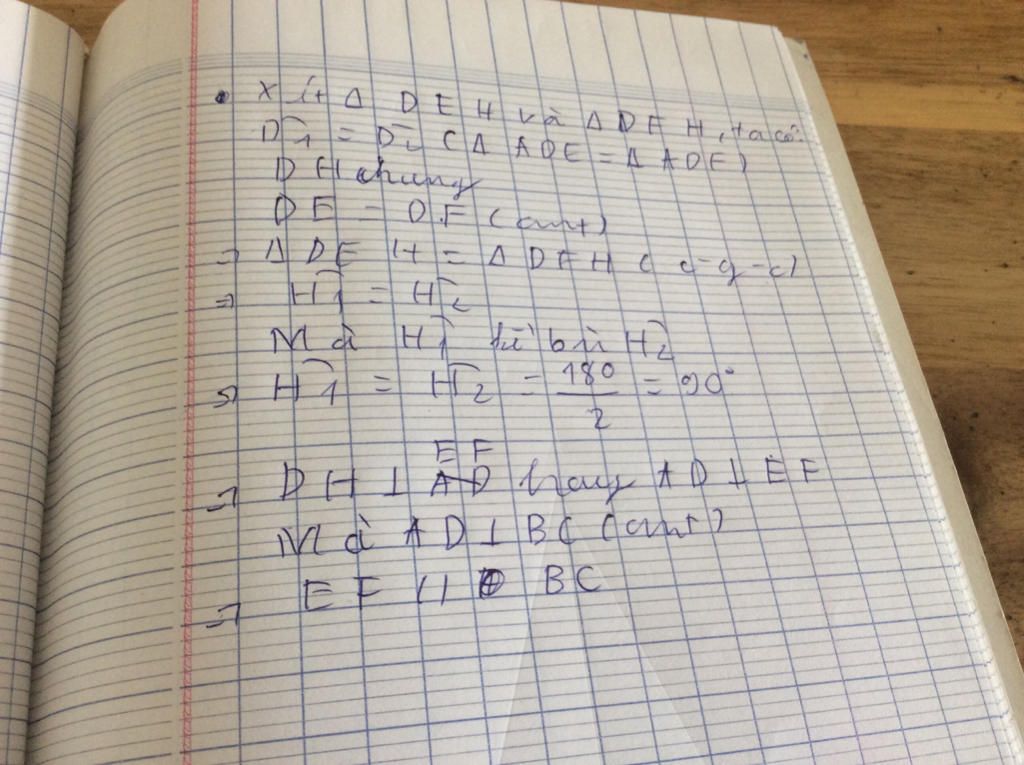 • Xét Δ DEH và Δ DFH, ta có:
D̂1 = D̂2 (Δ ADE = Δ ADE)
DH chung
DE = DF (cmt)
⇒ Δ DEH = Δ DFH (c-g-c)
⇒ Ĥ1 = Ĥ2
Mà Ĥ1 kề bù Ĥ2
⇒ Ĥ1 = Ĥ2 = 180/2 = 90°
EF
⇒ DH ⊥ AD hay AD ⊥ EF
Mà AD ⊥ BC (cmt)
⇒ EF // BC